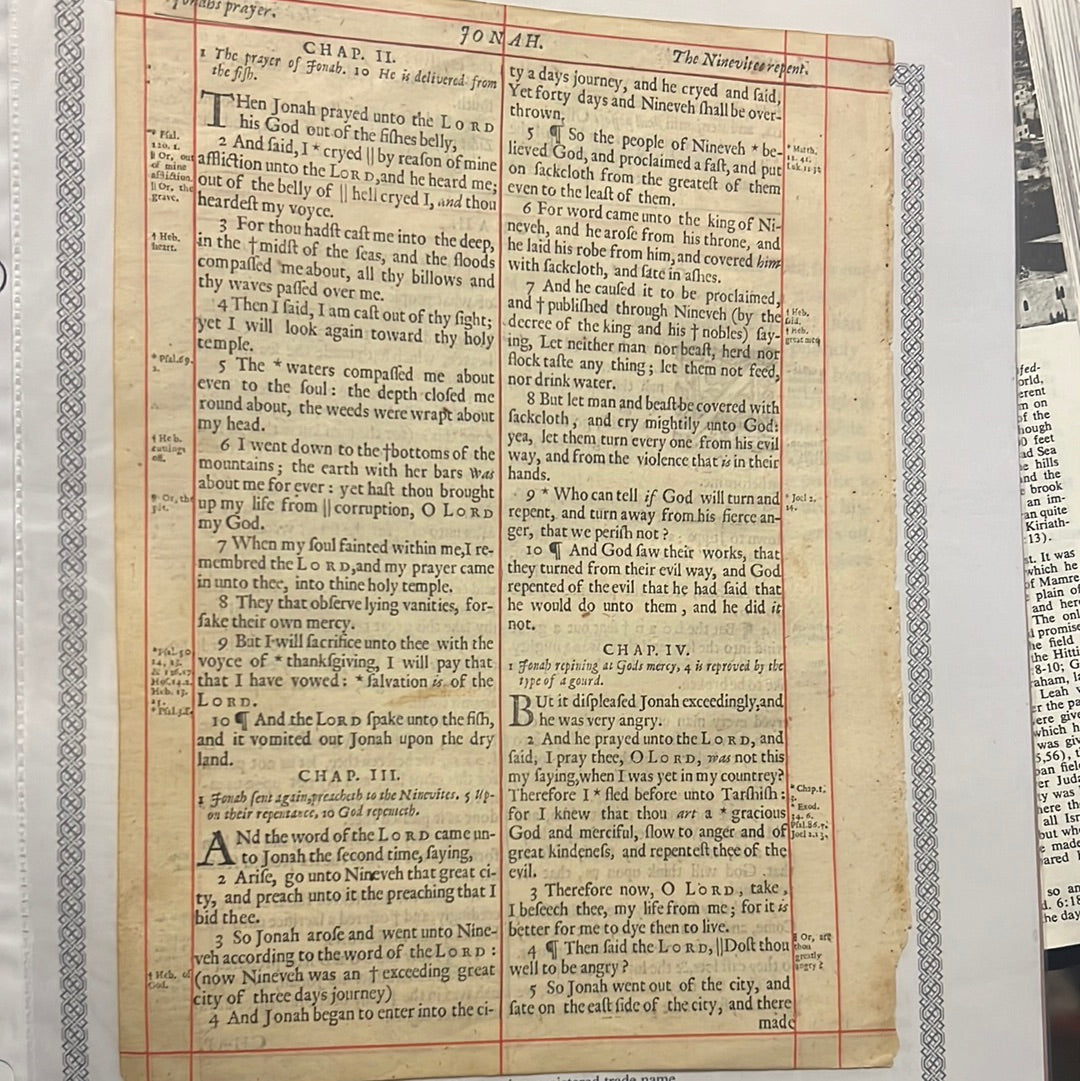 Jonahs prayer.
JONAH.
The Ninevites repent.
CHAP. II.
1 The prayer of Jonah. 10 He is delivered from
the fiſh.
THen Jonah prayed unto the LORD
his God out of the fiſhes belly,
2 And ſaid, I * cryed || by reaſon of mine
affliction unto the LORD, and he heard me;
out of the belly of || hell cryed I, and thou
heardeſt my voyce.
3 For thou hadſt caſt me into the deep,
in the † midſt of the ſeas, and the floods
compaſſed me about, all thy billows and
thy waves paſſed over me.
4 Then I ſaid, I am caſt out of thy ſight;
yet I will look again toward thy holy
temple.
5 The * waters compaſſed me about
even to the ſoul: the depth cloſed me
round about, the weeds were wrapt about
my head.
6 I went down to the † bottoms of the
mountains; the earth with her bars was
about me for ever: yet haſt thou brought
up my life from || corruption, O LORD
my God.
7 When my ſoul fainted within me, I re-
membred the LORD, and my prayer came
in unto thee, into thine holy temple.
8 They that obſerve lying vanities, for-
ſake their own mercy.
9 But I will ſacrifice unto thee with the
voyce of * thankſgiving, I will pay that
that I have vowed: * ſalvation is of the
LORD.
10 ¶ And the LORD ſpake unto the fiſh,
and it vomited out Jonah upon the dry
land.
CHAP. III.
1 Jonah ſent again, preacheth to the Ninevites. 5 Up-
on their repentance, 10 God repenteth.
ANd the word of the LORD came un-
to Jonah the ſecond time, ſaying,
2 Ariſe, go unto Nineveh that great ci-
ty, and preach unto it the preaching that I
bid thee.
3 So Jonah aroſe and went unto Nine-
veh according to the word of the LORD:
(now Nineveh was an † exceeding great
city of three days journey)
4 And Jonah began to enter into the ci-
* Pſal.
120. 1.
|| Or, out
of mine
affliction.
|| Or, the
grave.
† Heb.
heart.
* Pſal. 69.
† Heb.
cuttings
off.
|| Or, the
pit.
* Pſal. 50.
14, 23.
Heb. 13.
* Pſal. 3. 8.
† Heb. of
God.
ty a days journey, and he cryed and ſaid,
Yet forty days and Nineveh ſhall be over-
thrown.
5 ¶ So the people of Nineveh * be-
lieved God, and proclaimed a faſt, and put
on ſackcloth from the greateſt of them
even to the leaſt of them.
6 For word came unto the king of Ni-
neveh, and he aroſe from his throne, and
he laid his robe from him, and covered him
with ſackcloth, and ſate in aſhes.
7 And he cauſed it to be proclaimed,
and † publiſhed through Nineveh (by the
decree of the king and his † nobles) ſay-
ing, Let neither man nor beaſt, herd nor
flock taſte any thing; let them not feed,
nor drink water.
8 But let man and beaſt be covered with
ſackcloth, and cry mightily unto God:
yea, let them turn every one from his evil
way, and from the violence that is in their
hands.
9 * Who can tell if God will turn and
repent, and turn away from his fierce an-
ger, that we periſh not?
10 ¶ And God ſaw their works, that
they turned from their evil way, and God
repented of the evil that he had ſaid that
he would do unto them, and he did it
not.
CHAP. IV.
1 Jonah repining at Gods mercy, 4 is reproved by the
type of a gourd.
BUt it diſpleaſed Jonah exceedingly, and
he was very angry.
2 And he prayed unto the LORD, and
ſaid, I pray thee, O LORD, was not this
my ſaying, when I was yet in my countrey?
Therefore I * fled before unto Tarſhiſh:
for I knew that thou art a * gracious
God and merciful, ſlow to anger and of
great kindeneſs, and repenteſt thee of the
evil.
3 Therefore now, O LORD, take,
I beſeech thee, my life from me; for it is
better for me to dye then to live.
4 ¶ Then ſaid the LORD, || Doſt thou
well to be angry?
5 So Jonah went out of the city, and
ſate on the eaſt ſide of the city, and there
made
* Matth.
12. 41.
Luk. 11. 32
† Heb.
ſaid.
† Heb.
great men
* Joel 2.
14.
* Chap. 1.
* Exod.
34. 6.
Pſal. 86. 5.
Joel 2. 13.
|| Or, art
thou
greatly
angry?
trade name
of the
ad Sea
hills
and the
brook
an im-
an quite
Kiriath-
13).
It was
which he
of Mamre
plain of
and
The
promise
field
the Hitti
8-10; G
Leah
which h
5,56),
all Isr
but
made
so
6:18
day